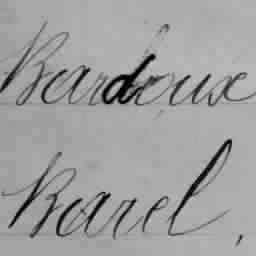 Bardoux
Barel,